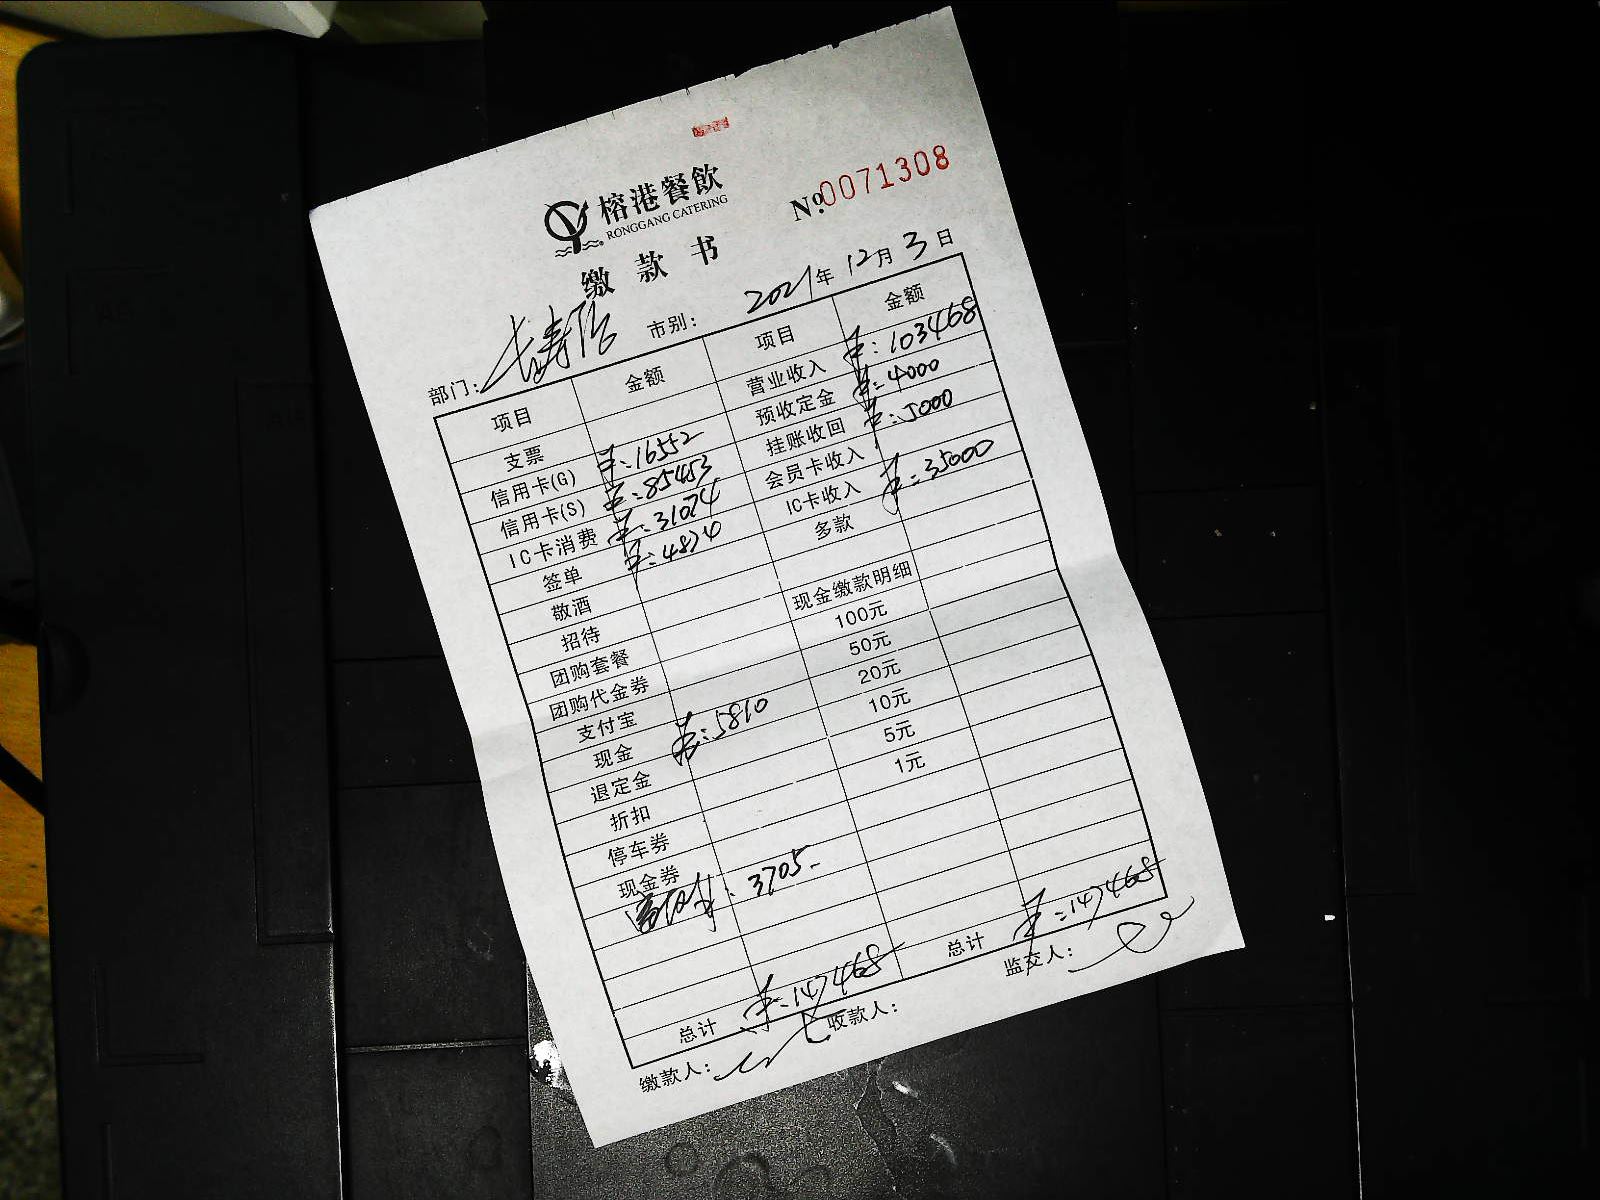 榕港餐飲
RONGGANG CATERING
No.0071308
缴款书
部门： 市别： 2021年12月3日
项目 金额 项目 金额
支票 营业收入 103468
信用卡(G) 16552 预收定金 4000
信用卡(S) 85453 挂账收回 5000
IC卡消费 31074 会员卡收入
签单 IC卡收入 35000
敬酒 多款
招待
团购套餐 现金缴款明细
团购代金券 100元
支付宝 50元
现金 5810 20元
退定金 10元
折扣 5元
停车券 1元
现金券
3705-
总计 147468 总计 147468
缴款人： 收款人： 监交人：